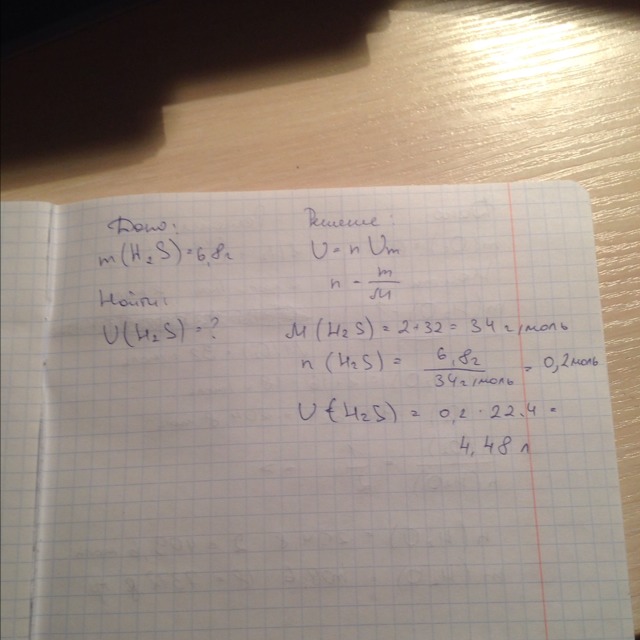 Дано:
m(H₂S)=6,8г
Найти:
V(H₂S)=?
Решение:
V=n Vm
n = m/M
M(H₂S)=2+32=34 г/моль
n(H₂S) = 6,8г/34г/моль = 0,2моль
V(H₂S) = 0,2 · 22.4 =
4,48 л